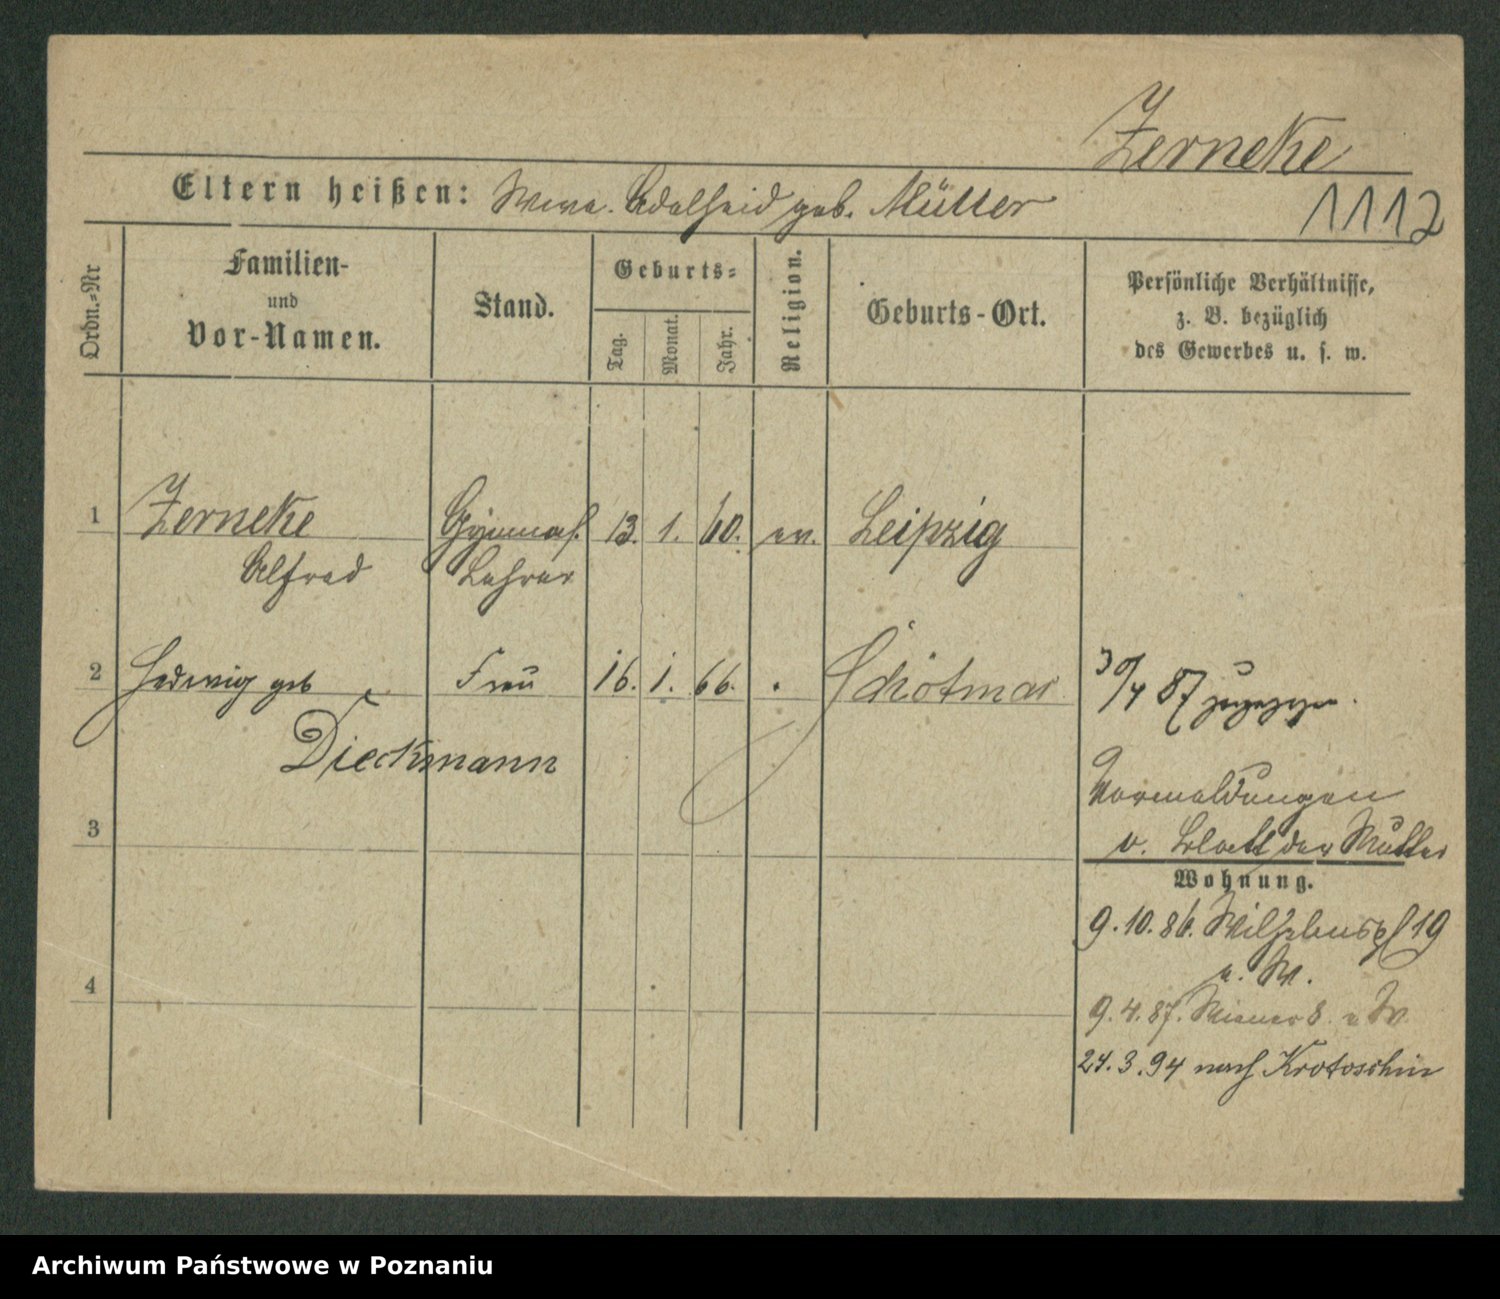 Zerneke
Eltern heißen: Wwe. Adelheid geb. Müller
1112
Ordn.=Nr
Familien-
und
Vor-Namen.
Stand.
Geburts=
Tag.
Monat.
Jahr.
Religion.
Geburts-Ort.
Persönliche Verhältnisse,
z. B. bezüglich
des Gewerbes u. s. w.
1 Zerneke Gymnas. 13. 1. 60. ev. Leipzig
Alfred Lehrer
2 Hedwig geb Frau 16. 1. 66. Schötmar
Dieckmann
30/4 87 zugezogen.
3
Vormeldungen
v. Blatt der Mutter
Wohnung.
9.10.86. Wilhelmspl 19
b. W.
4
9.4.87. Wiener 8. b W
24.3.94 nach Krotoschin
Archiwum Państwowe w Poznaniu